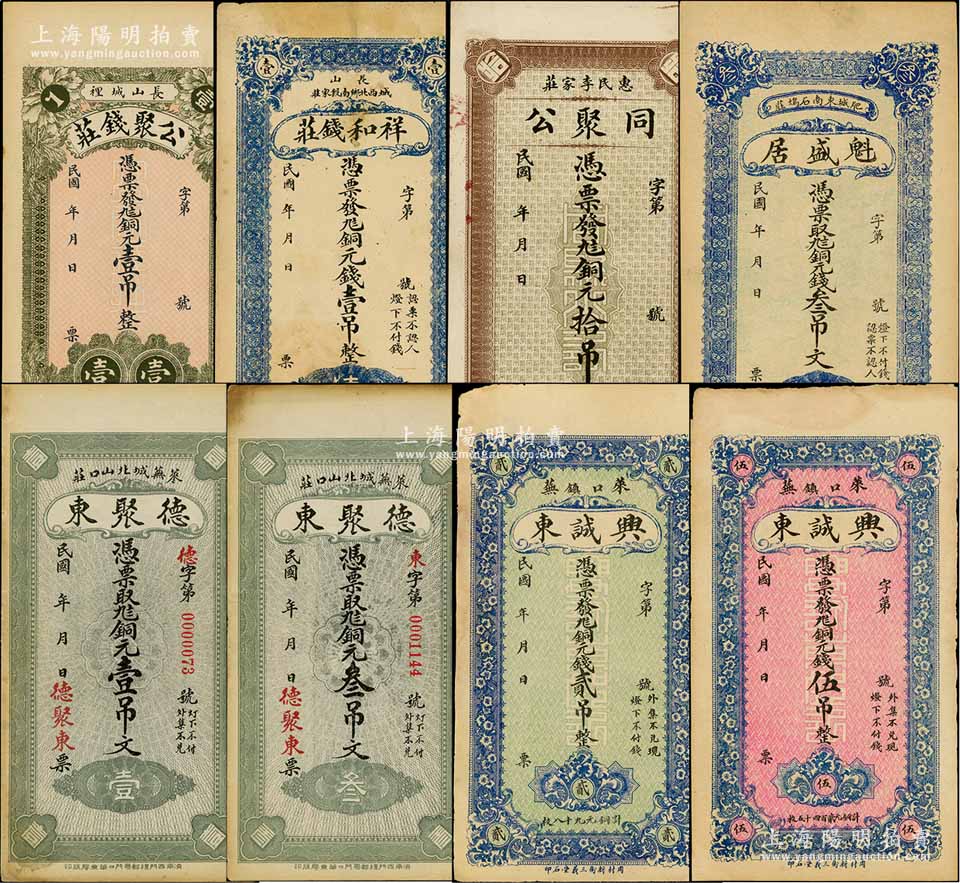 上海陽明拍賣
www.yangmingauction.com
長山城裡
公聚錢莊
憑票發兌銅元壹吊整
字第
號
民國 年 月 日
票
1
壹
壹
壹
長山
祥和錢莊
憑票發兌銅元錢壹吊整
字第
號
認票不認人
燈下不付錢
民國 年 月 日
票
壹
惠民李家莊
同聚公
憑票發兌銅元拾吊
字第
號
民國 年 月 日
肥城東南石塢莊
魁盛居
憑票取兌銅元錢叁吊文
字第
號
燈下不付錢
認票不認人
民國 年 月 日
票
叁
萊蕪城北山口莊
德聚東
憑票取兌銅元壹吊文
德字第
0000073
號
灯下不付
外集不兑
民國 年 月 日
德聚東
票
壹
萊蕪城北山口莊
德聚東
憑票取兌銅元叁吊文
東字第
0001144
號
灯下不付
外集不兑
民國 年 月 日
德聚東
票
叁
上海陽明拍賣
www.yangmingauction.com
貳
貳
萊口鎮蕪
興誠東
憑票發兌銅元錢貳吊整
字第
號
外集不兑現
燈下不付錢
民國 年 月 日
票
貳
計銅元九十八枚
貳
貳
周村新街三義堂石印
伍
伍
萊口鎮蕪
興誠東
憑票發兌銅元錢伍吊整
字第
號
外集不兑現
燈下不付錢
民國 年 月 日
票
伍
計銅元貳百四十五枚
伍
伍
周村新街三義堂石印
上海陽明拍賣
www.yangmingauction.com